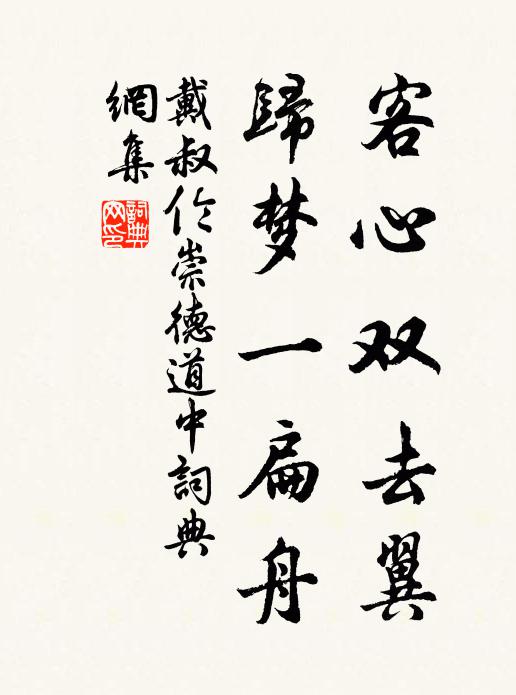 客心双去翼
歸梦一扁舟
戴叔伦崇德道中詞典
網集
詞典网印